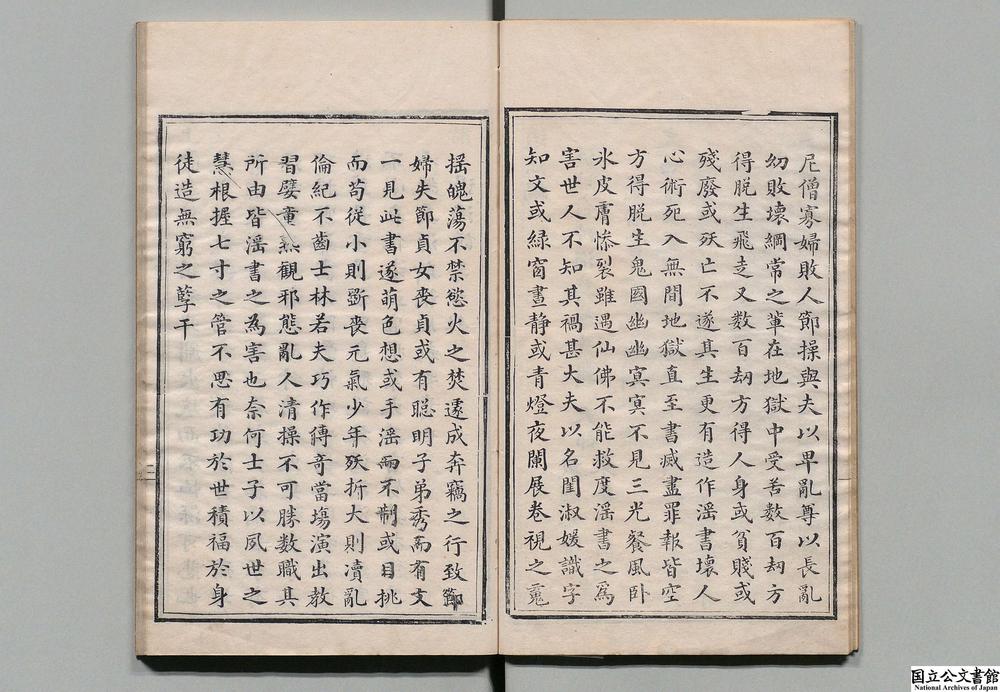 尼僧寡婦敗人節操與夫以卑亂尊以長亂
幼敗壞綱常之軰在地獄中受苦數百刼方
得脱生飛走又數百刼方得人身或貧賤或
殘廢或殀亡不遂其生更有造作滛書壞人
心術死入無間地獄直至書㓕盡罪報皆空
方得脱生鬼國幽幽㝠㝠不見三光餐風卧
氷皮膚慘裂雖遇仙佛不能救度滛書之爲
害世人不知其禍甚大夫以名閨淑媛識字
知文或緑窗晝静或青燈夜闌展卷視之䰟
揺魄蕩不禁慾火之焚遽成奔竊之行致節
婦失節貞女喪貞或有聡明子弟秀而有文
一見此書遂萌色想或手滛而不制或目挑
而苟從小則斵喪元氣少年殀折大則瀆亂
倫紀不齒士林若夫巧作傳奇當場演出教
習嬖童𤍠觀邪態亂人清操不可勝數職其
所由皆滛書之為害也奈何士子以夙世之
慧根握七寸之管不思有功於世積福於身
徒造無窮之孽干
二
国立公文書館
National Archives of Japan